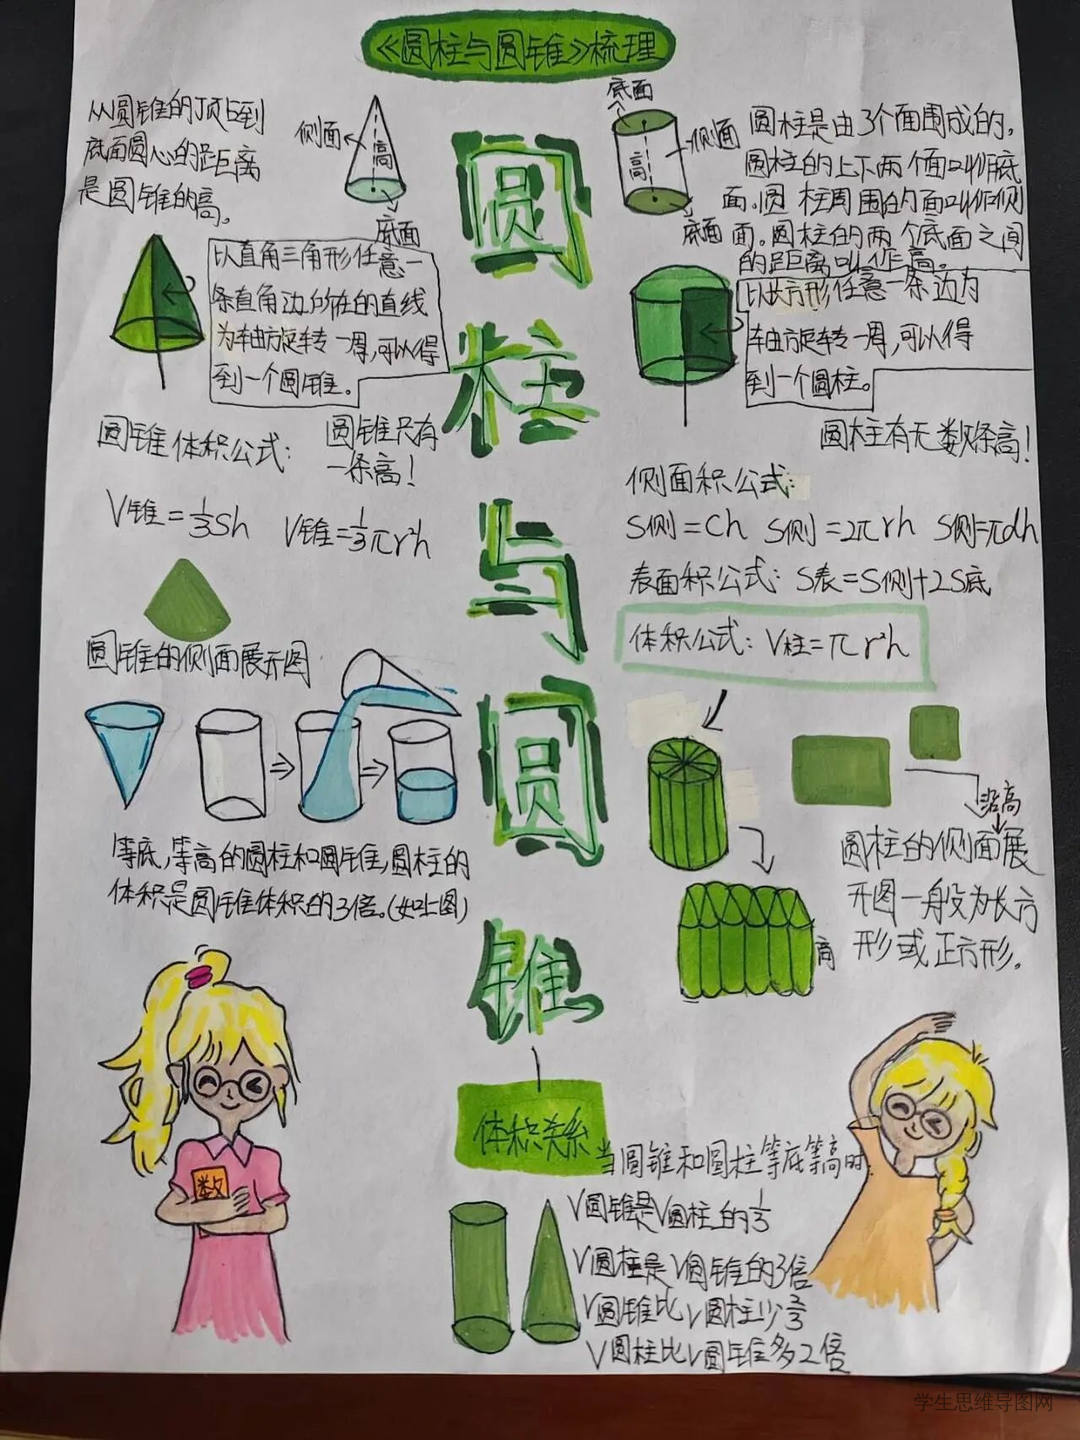 《圆柱与圆锥》梳理
从圆锥的顶点到
底面圆心的距离
是圆锥的高。
侧面
高
底面
底面
高
侧面
底面
圆柱是由3个面围成的。
圆柱的上下两个面叫作底
面。圆柱周围的面叫作侧
面。圆柱的两个底面之间
的距离叫作高。
以直角三角形任意一
条直角边所在的直线
为轴旋转一周,可以得
到一个圆锥。
以长方形任意一条边为
轴旋转一周,可以得
到一个圆柱。
圆锥体积公式:
圆锥只有
一条高!
V锥=1/3Sh
V锥=1/3πr²h
圆锥的侧面展开图
圆柱有无数条高!
侧面积公式:
S侧=Ch S侧=2πrh S侧=πdh
表面积公式: S表=S侧+2S底
体积公式: V柱=πr²h
圆
柱
与
圆
锥
等底,等高的圆柱和圆锥,圆柱的
体积是圆锥体积的3倍。(如上图)
沿高
圆柱的侧面展
开图一般为长方
形或正方形。
高
数
体积关系
当圆锥和圆柱等底等高时.
V圆锥是V圆柱的1/3
V圆柱是V圆锥的3倍
V圆锥比V圆柱少2/3
V圆柱比V圆锥多2倍
学生思维导图网